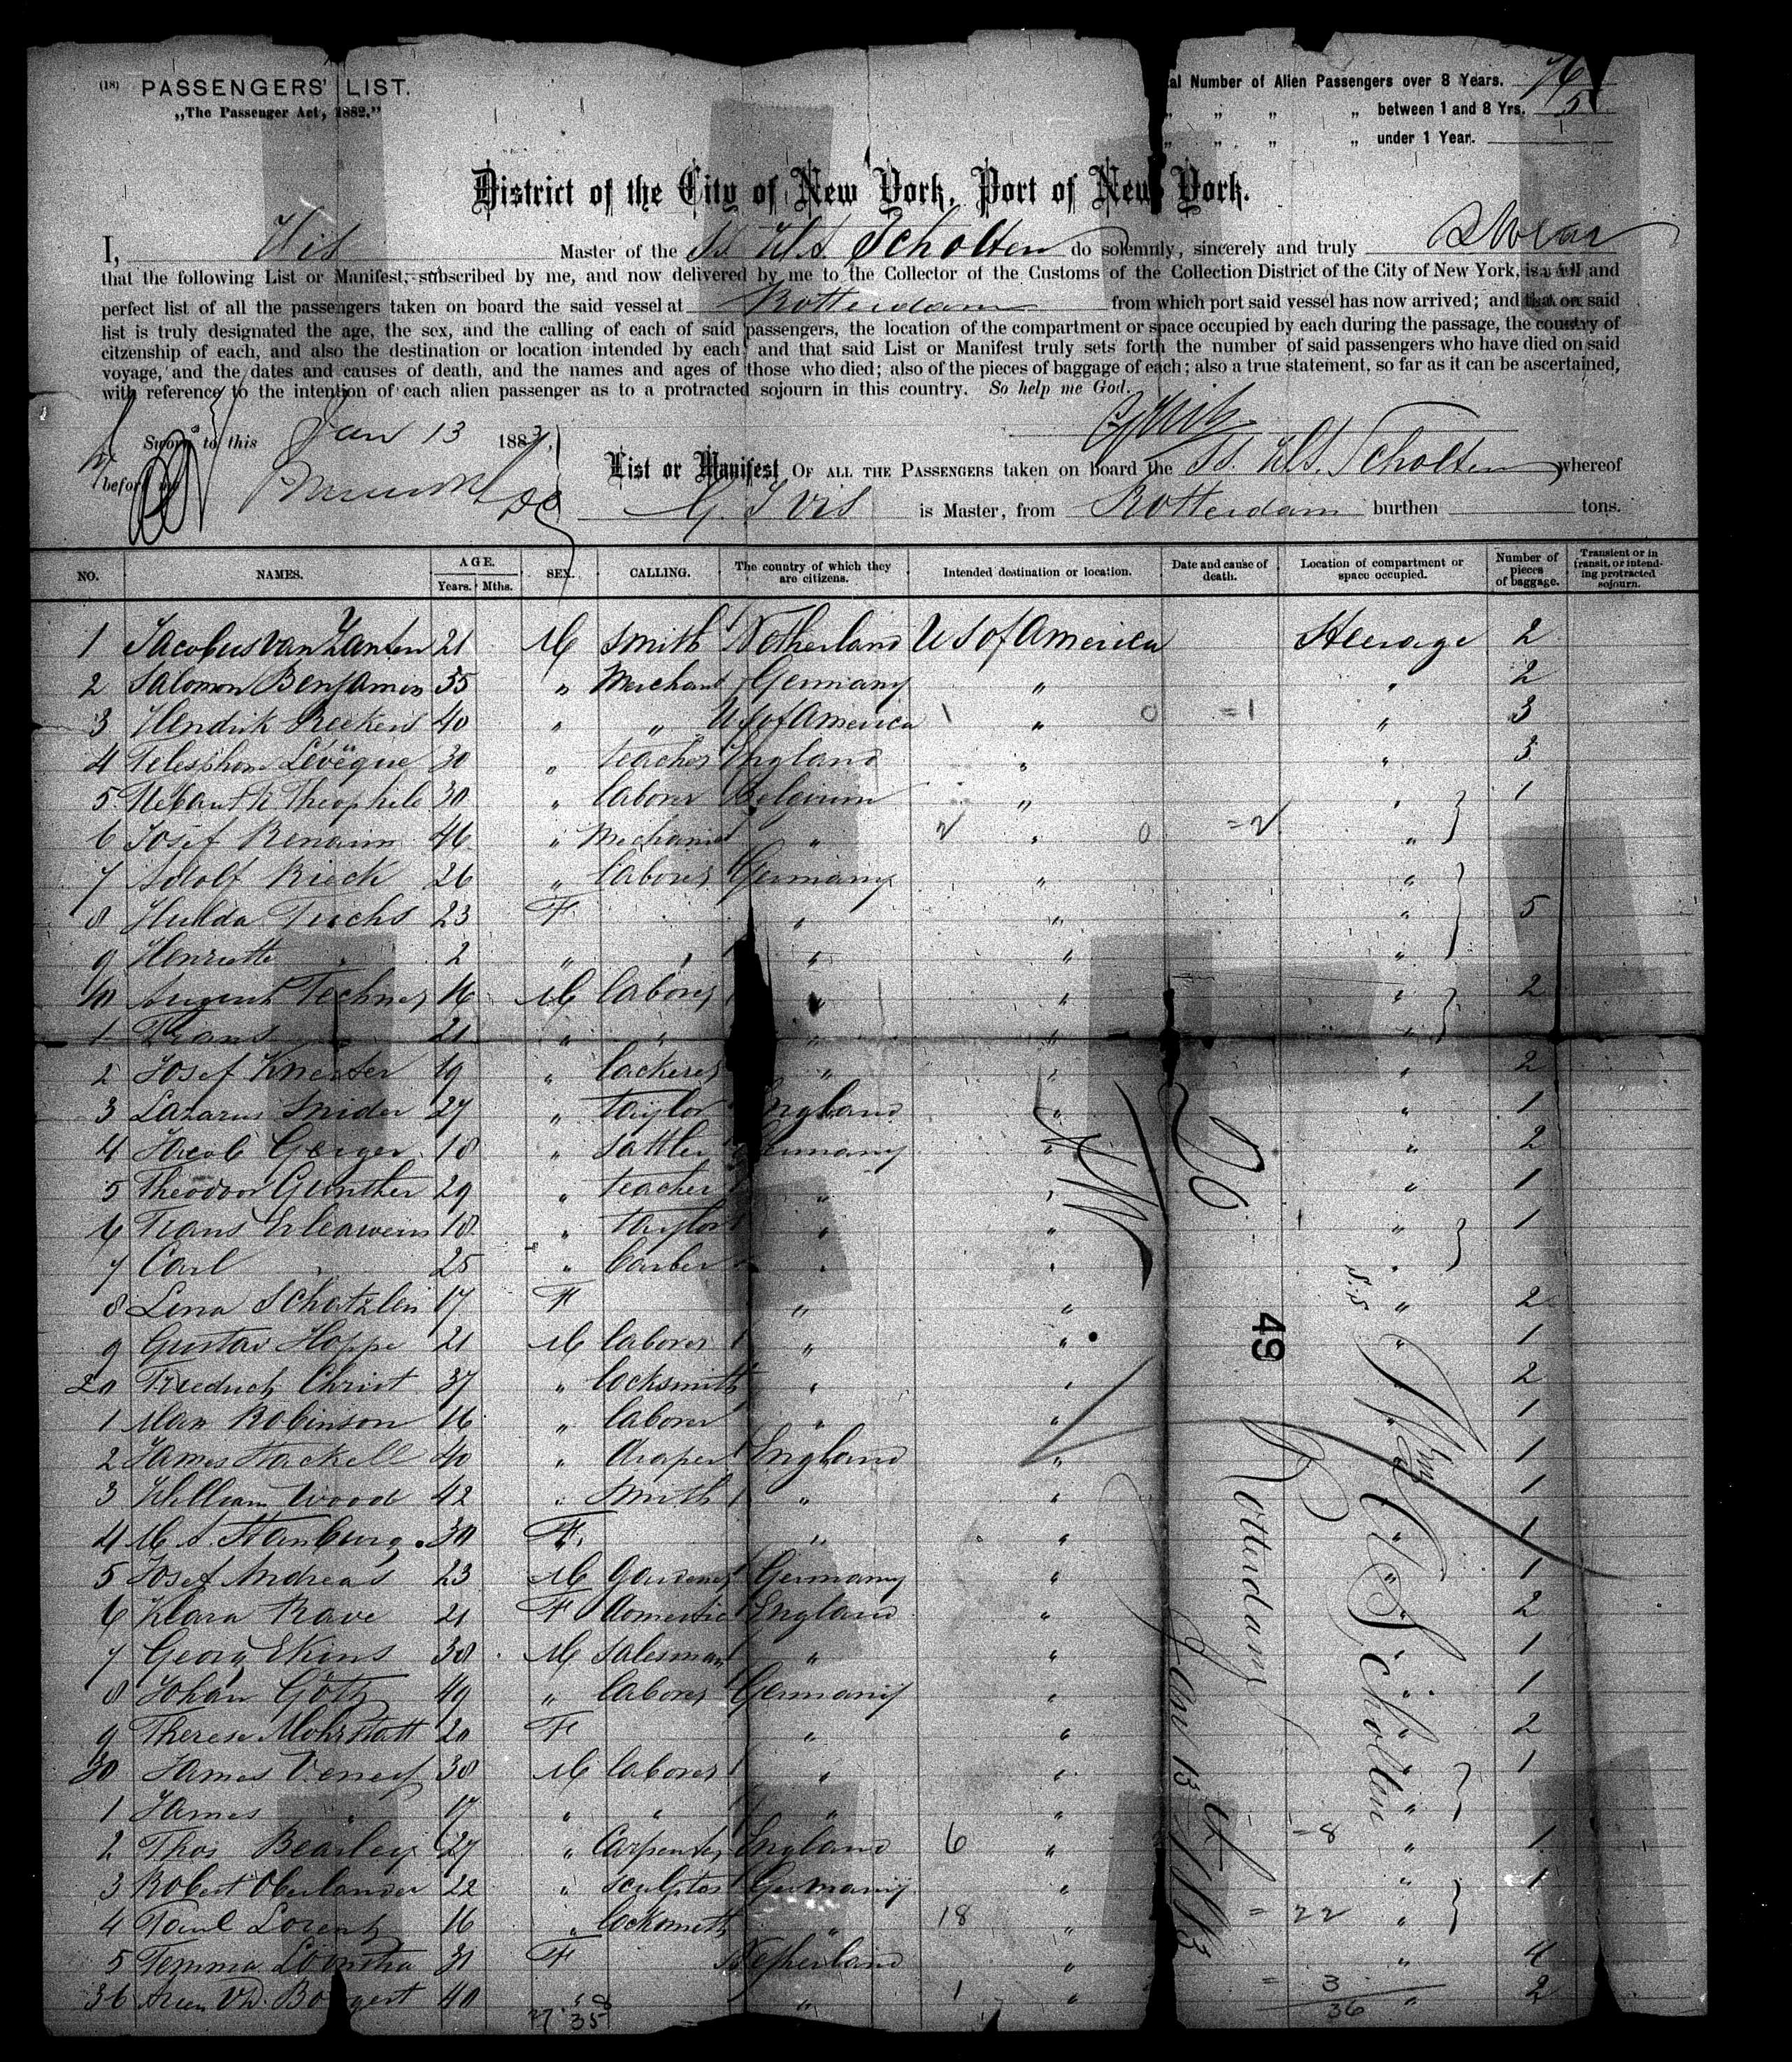 (18) PASSENGERS' LIST.
„The Passenger Act, 1882."
al Number of Alien Passengers over 8 Years. 76
„ „ „ „ between 1 and 8 Yrs. 5
„ „ „ „ under 1 Year.
District of the City of New York, Port of New York.
I, Vis Master of the Ss. W. A. Scholten do solemnly, sincerely and truly swear
that the following List or Manifest, subscribed by me, and now delivered by me to the Collector of the Customs of the Collection District of the City of New York, is a full and
perfect list of all the passengers taken on board the said vessel at Rotterdam from which port said vessel has now arrived; and that on said
list is truly designated the age, the sex, and the calling of each of said passengers, the location of the compartment or space occupied by each during the passage, the country of
citzenship of each, and also the destination or location intended by each, and that said List or Manifest truly sets forth the number of said passengers who have died on said
voyage, and the dates and causes of death, and the names and ages of those who died; also of the pieces of baggage of each; also a true statement, so far as it can be ascertained,
with reference to the intention of each alien passenger as to a protracted sojourn in this country. So help me God.
Sworn to this Jan 13 1883
before me
List or Manifest OF ALL THE PASSENGERS taken on board the Ss. W. A. Scholten whereof
G. J Vis is Master, from Rotterdam burthen tons.
NO. NAMES. AGE. Years. Mths. SEX. CALLING. The country of which they are citizens. Intended destination or location. Date and cause of death. Location of compartment or space occupied. Number of pieces of baggage. Transient or in transit, or intending protracted sojourn.
1 Jacobus van Zanten 21 M smith Netherland U S of America Steerage 2
2 Salomon Benjamin 35 „ Merchant Germany „ „ 2
3 Hendrik 40 „ „ U S of America 1 „ 0 =1 „ 3
4 Lévêque 30 „ teacher England „ „ 3
5 Theophile 30 „ laborer Belgium „ „ 1
6 Josef Renaim 46 „ Mechanic „ 2 „ 0 =2 „
7 Adolf Rieck 26 „ laborer Germany „ „
8 Hulda Fuchs 23 F „ „ „ 5
9 Henriette „ 2 „ „ „ „
10 August Techner 16 M laborer „ „ „ 2
1 Frans „ 21 „ „ „ „ „
2 Josef 19 „ lackerer „ „ „ 2
3 Lazarus Snider 27 „ taylor England „ „ 1
4 Jacob Geiger 18 „ sattler Germany „ „ 2
5 Theodoor Gunther 29 „ teacher „ „ „ 1
6 Frans 18 „ taylor „ „ „ 1
7 Carl „ 25 „ barber „ „ „
8 Lena Schatzlein 17 F „ „ „ 2
9 Gustav Hoppe 21 M laborer „ „ „ 1
20 Friedrich Christ 37 „ locksmith „ „ „ 2
1 Max Robinson 16 „ laborer „ „ „ 1
2 James Hackell 40 „ draper England „ „ 1
3 William Wood 42 „ smith „ „ „ 1
4 M. A. Stanburg 30 F „ „ „ 1
5 Josef Andreas 23 M gardener Germany „ „ 1
6 Klara Rave 21 F domestic England „ „ 2
7 Georg Ekins 38 M salesman „ „ „ 1
8 Johan Götz 49 „ laborer Germany „ „ 1
9 Therese Mohrstatt 20 F „ „ „ 2
30 James Veney 38 M laborer „ „ „ 1
1 James „ 17 „ „ „ „ „
2 Thos Bearley 27 „ Carpenter England 6 „ =8 „ 1
3 Robert Oberlander 22 „ sculptor Germany „ „ 1
4 Paul Lorentz 16 „ locksmith „ 18 „ =22 „
5 Femma 31 F Netherland „ „ 4
36 Arien vd. Bogert 40 „ „ 1 „ = 3 „ 2
35 36
49
S.S. Wm A Scholten
Rotterdam
Jan 13th 1883